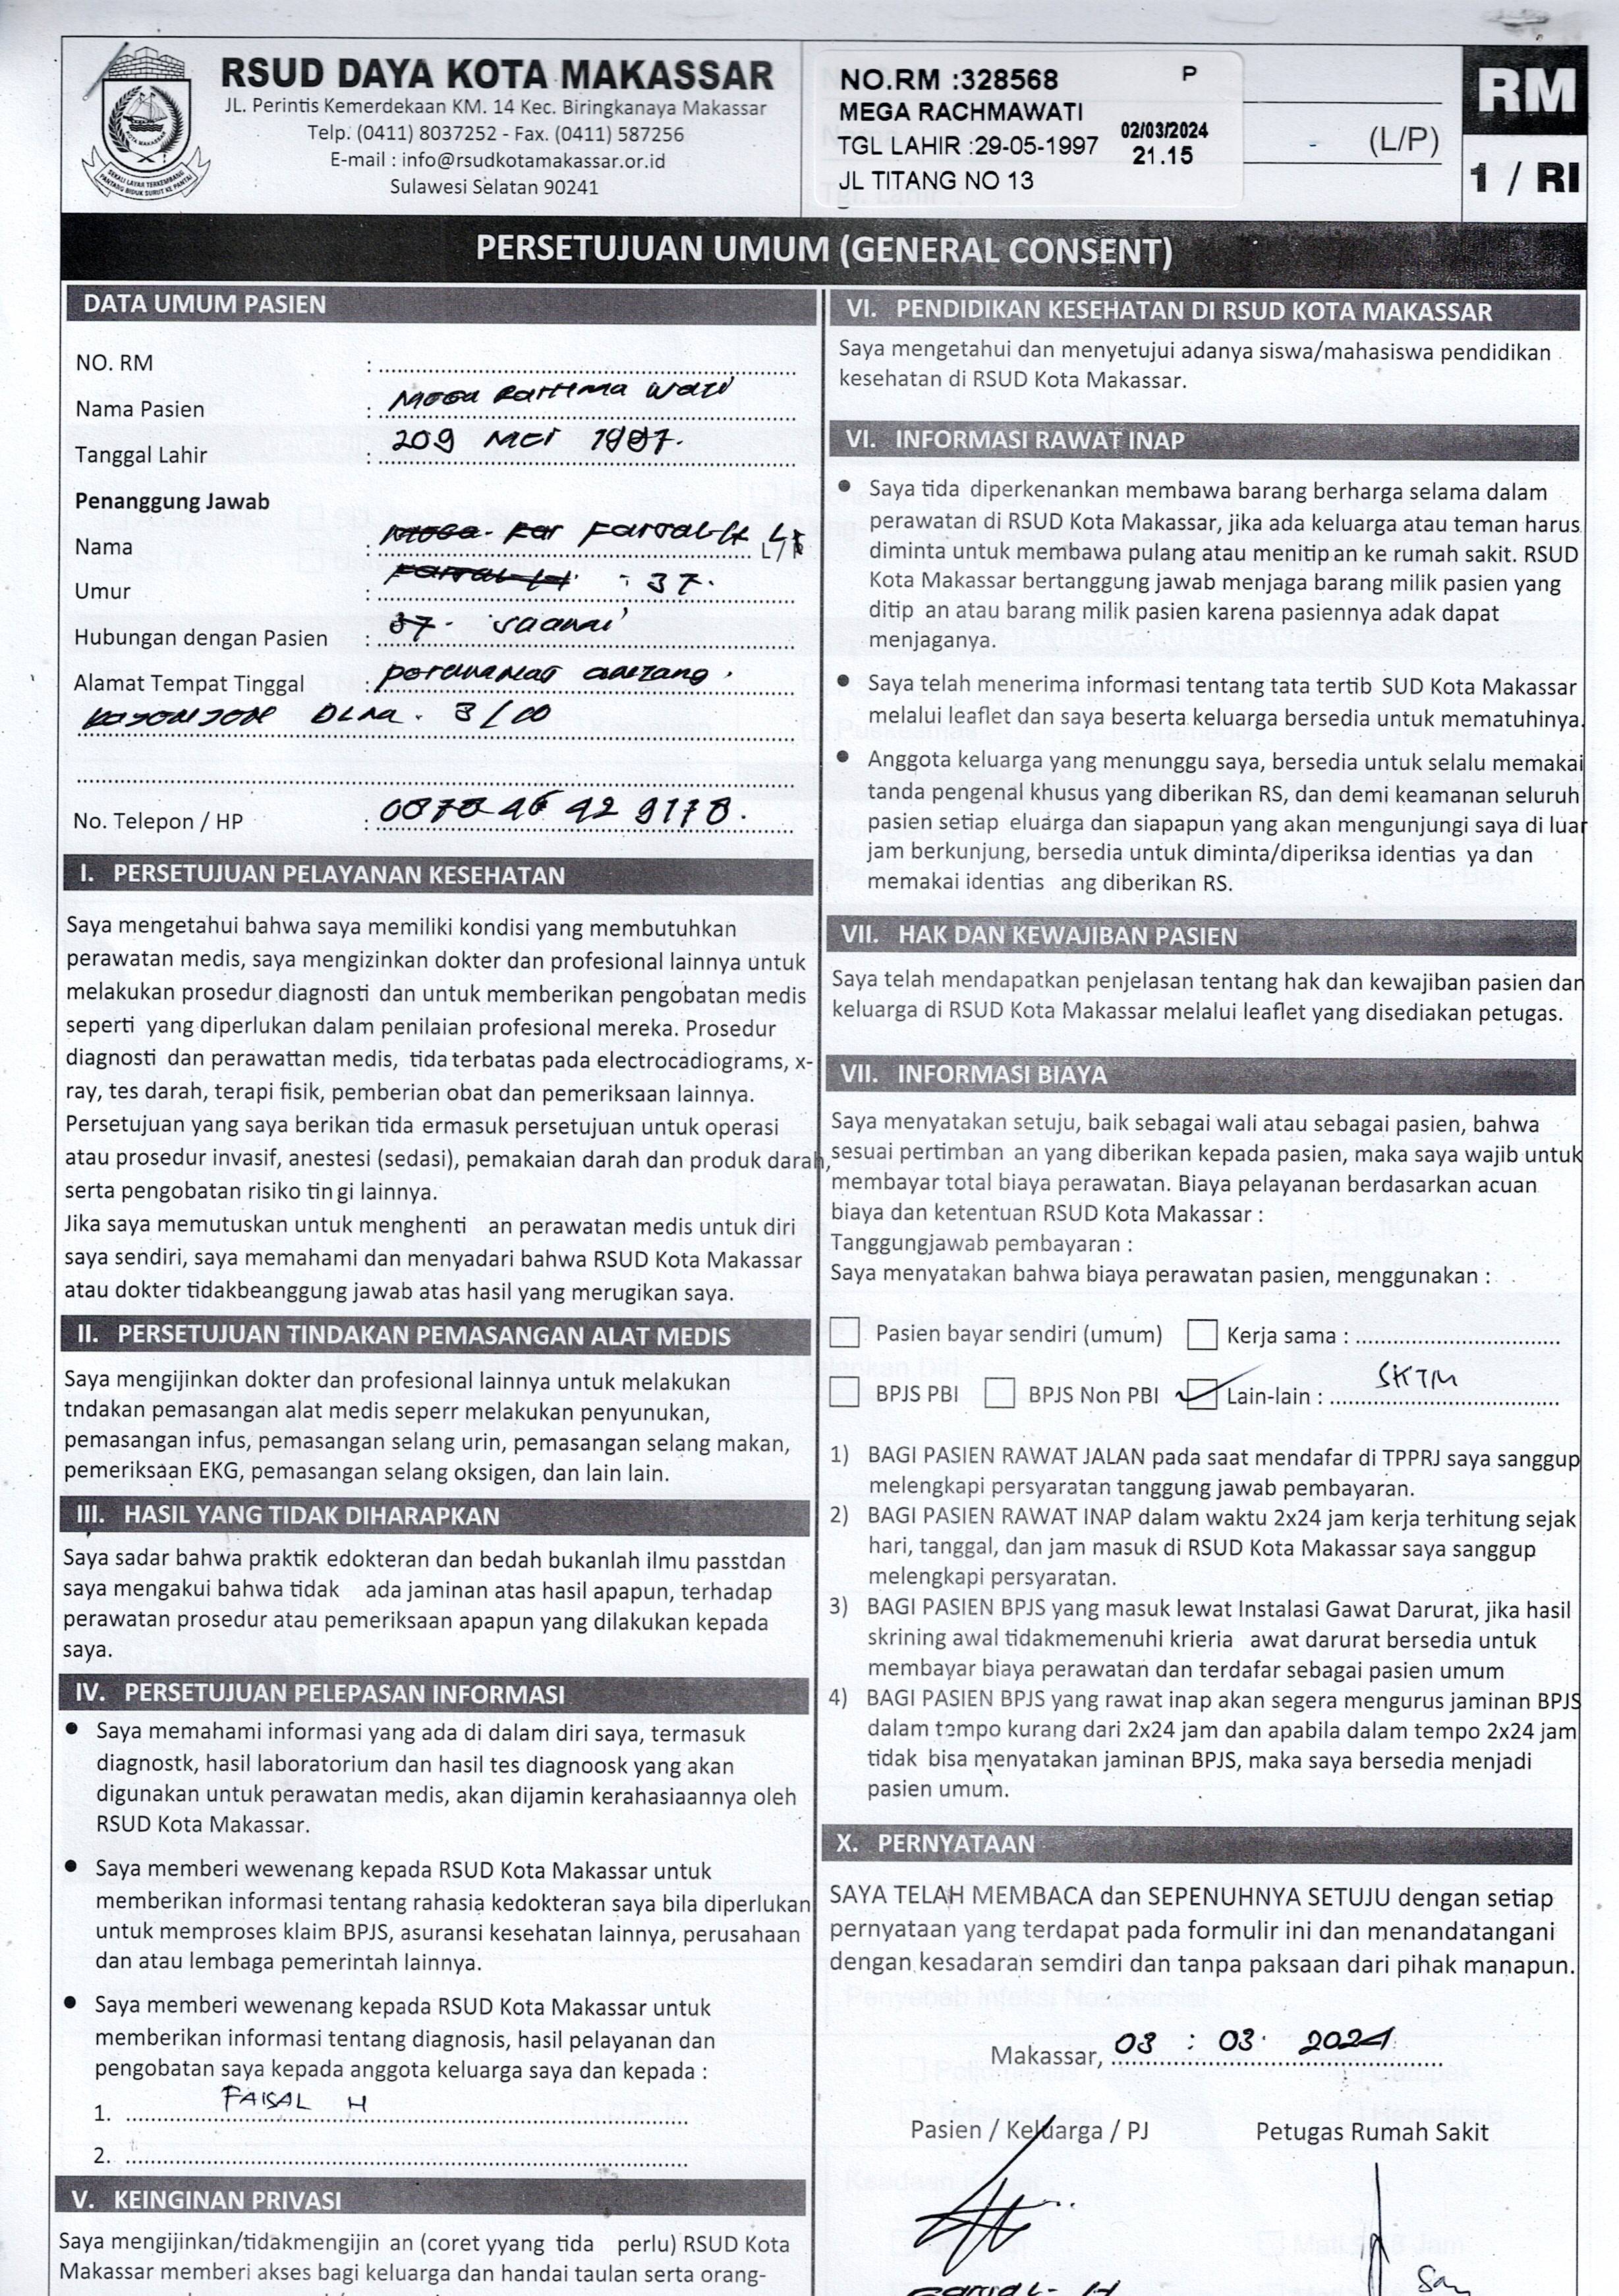 RSUD DAYA KOTA MAKASSAR
JL. Perintis Kemerdekaan KM. 14 Kec. Biringkanaya Makassar
Telp. (0411) 8037252 - Fax. (0411) 587256
E-mail : info@rsudkotamakassar.or.id
Sulawesi Selatan 90241
SEKALI LAYAR TERKEMBANG
PANTANG BIDUK SURUT KE PANTAI
NO.RM :328568 P
MEGA RACHMAWATI
TGL LAHIR :29-05-1997 02/03/2024
21.15
JL TITANG NO 13
(L/P)
RM
1 / RI
PERSETUJUAN UMUM (GENERAL CONSENT)
DATA UMUM PASIEN
NO. RM :
Nama Pasien :
Tanggal Lahir : 209 Mei 1997.
Penanggung Jawab
Nama : L/P
Umur : 37.
Hubungan dengan Pasien : 37.
Alamat Tempat Tinggal :
3/
No. Telepon / HP :
I. PERSETUJUAN PELAYANAN KESEHATAN
Saya mengetahui bahwa saya memiliki kondisi yang membutuhkan
perawatan medis, saya mengizinkan dokter dan profesional lainnya untuk
melakukan prosedur diagnosti dan untuk memberikan pengobatan medis
seperti yang diperlukan dalam penilaian profesional mereka. Prosedur
diagnosti dan perawattan medis, tida terbatas pada electrocadiograms, x-
ray, tes darah, terapi fisik, pemberian obat dan pemeriksaan lainnya.
Persetujuan yang saya berikan tida ermasuk persetujuan untuk operasi
atau prosedur invasif, anestesi (sedasi), pemakaian darah dan produk darah,
serta pengobatan risiko tin gi lainnya.
Jika saya memutuskan untuk menghenti an perawatan medis untuk diri
saya sendiri, saya memahami dan menyadari bahwa RSUD Kota Makassar
atau dokter tidakbeanggung jawab atas hasil yang merugikan saya.
II. PERSETUJUAN TINDAKAN PEMASANGAN ALAT MEDIS
Saya mengijinkan dokter dan profesional lainnya untuk melakukan
tndakan pemasangan alat medis seperr melakukan penyunukan,
pemasangan infus, pemasangan selang urin, pemasangan selang makan,
pemeriksaan EKG, pemasangan selang oksigen, dan lain lain.
III. HASIL YANG TIDAK DIHARAPKAN
Saya sadar bahwa praktik edokteran dan bedah bukanlah ilmu passtdan
saya mengakui bahwa tidak ada jaminan atas hasil apapun, terhadap
perawatan prosedur atau pemeriksaan apapun yang dilakukan kepada
saya.
IV. PERSETUJUAN PELEPASAN INFORMASI
• Saya memahami informasi yang ada di dalam diri saya, termasuk
diagnostk, hasil laboratorium dan hasil tes diagnoosk yang akan
digunakan untuk perawatan medis, akan dijamin kerahasiaannya oleh
RSUD Kota Makassar.
• Saya memberi wewenang kepada RSUD Kota Makassar untuk
memberikan informasi tentang rahasia kedokteran saya bila diperlukan
untuk memproses klaim BPJS, asuransi kesehatan lainnya, perusahaan
dan atau lembaga pemerintah lainnya.
• Saya memberi wewenang kepada RSUD Kota Makassar untuk
memberikan informasi tentang diagnosis, hasil pelayanan dan
pengobatan saya kepada anggota keluarga saya dan kepada :
1. FAISAL H
2.
V. KEINGINAN PRIVASI
Saya mengijinkan/tidakmengijin an (coret yyang tida perlu) RSUD Kota
Makassar memberi akses bagi keluarga dan handai taulan serta orang-
VI. PENDIDIKAN KESEHATAN DI RSUD KOTA MAKASSAR
Saya mengetahui dan menyetujui adanya siswa/mahasiswa pendidikan
kesehatan di RSUD Kota Makassar.
VI. INFORMASI RAWAT INAP
• Saya tida diperkenankan membawa barang berharga selama dalam
perawatan di RSUD Kota Makassar, jika ada keluarga atau teman harus
diminta untuk membawa pulang atau menitip an ke rumah sakit. RSUD
Kota Makassar bertanggung jawab menjaga barang milik pasien yang
ditip an atau barang milik pasien karena pasiennya adak dapat
menjaganya.
• Saya telah menerima informasi tentang tata tertib SUD Kota Makassar
melalui leaflet dan saya beserta keluarga bersedia untuk mematuhinya.
• Anggota keluarga yang menunggu saya, bersedia untuk selalu memakai
tanda pengenal khusus yang diberikan RS, dan demi keamanan seluruh
pasien setiap eluarga dan siapapun yang akan mengunjungi saya di luar
jam berkunjung, bersedia untuk diminta/diperiksa identias ya dan
memakai identias ang diberikan RS.
VII. HAK DAN KEWAJIBAN PASIEN
Saya telah mendapatkan penjelasan tentang hak dan kewajiban pasien dan
keluarga di RSUD Kota Makassar melalui leaflet yang disediakan petugas.
VII. INFORMASI BIAYA
Saya menyatakan setuju, baik sebagai wali atau sebagai pasien, bahwa
sesuai pertimban an yang diberikan kepada pasien, maka saya wajib untuk
membayar total biaya perawatan. Biaya pelayanan berdasarkan acuan
biaya dan ketentuan RSUD Kota Makassar :
Tanggungjawab pembayaran :
Saya menyatakan bahwa biaya perawatan pasien, menggunakan :
Pasien bayar sendiri (umum) Kerja sama :
BPJS PBI BPJS Non PBI Lain-lain : SKTM
1) BAGI PASIEN RAWAT JALAN pada saat mendafar di TPPRJ saya sanggup
melengkapi persyaratan tanggung jawab pembayaran.
2) BAGI PASIEN RAWAT INAP dalam waktu 2x24 jam kerja terhitung sejak
hari, tanggal, dan jam masuk di RSUD Kota Makassar saya sanggup
melengkapi persyaratan.
3) BAGI PASIEN BPJS yang masuk lewat Instalasi Gawat Darurat, jika hasil
skrining awal tidakmemenuhi krieria awat darurat bersedia untuk
membayar biaya perawatan dan terdafar sebagai pasien umum
4) BAGI PASIEN BPJS yang rawat inap akan segera mengurus jaminan BPJS
dalam tempo kurang dari 2x24 jam dan apabila dalam tempo 2x24 jam
tidak bisa menyatakan jaminan BPJS, maka saya bersedia menjadi
pasien umum.
X. PERNYATAAN
SAYA TELAH MEMBACA dan SEPENUHNYA SETUJU dengan setiap
pernyataan yang terdapat pada formulir ini dan menandatangani
dengan kesadaran semdiri dan tanpa paksaan dari pihak manapun.
Makassar, 03 : 03. 2024
Pasien / Keluarga / PJ Petugas Rumah Sakit